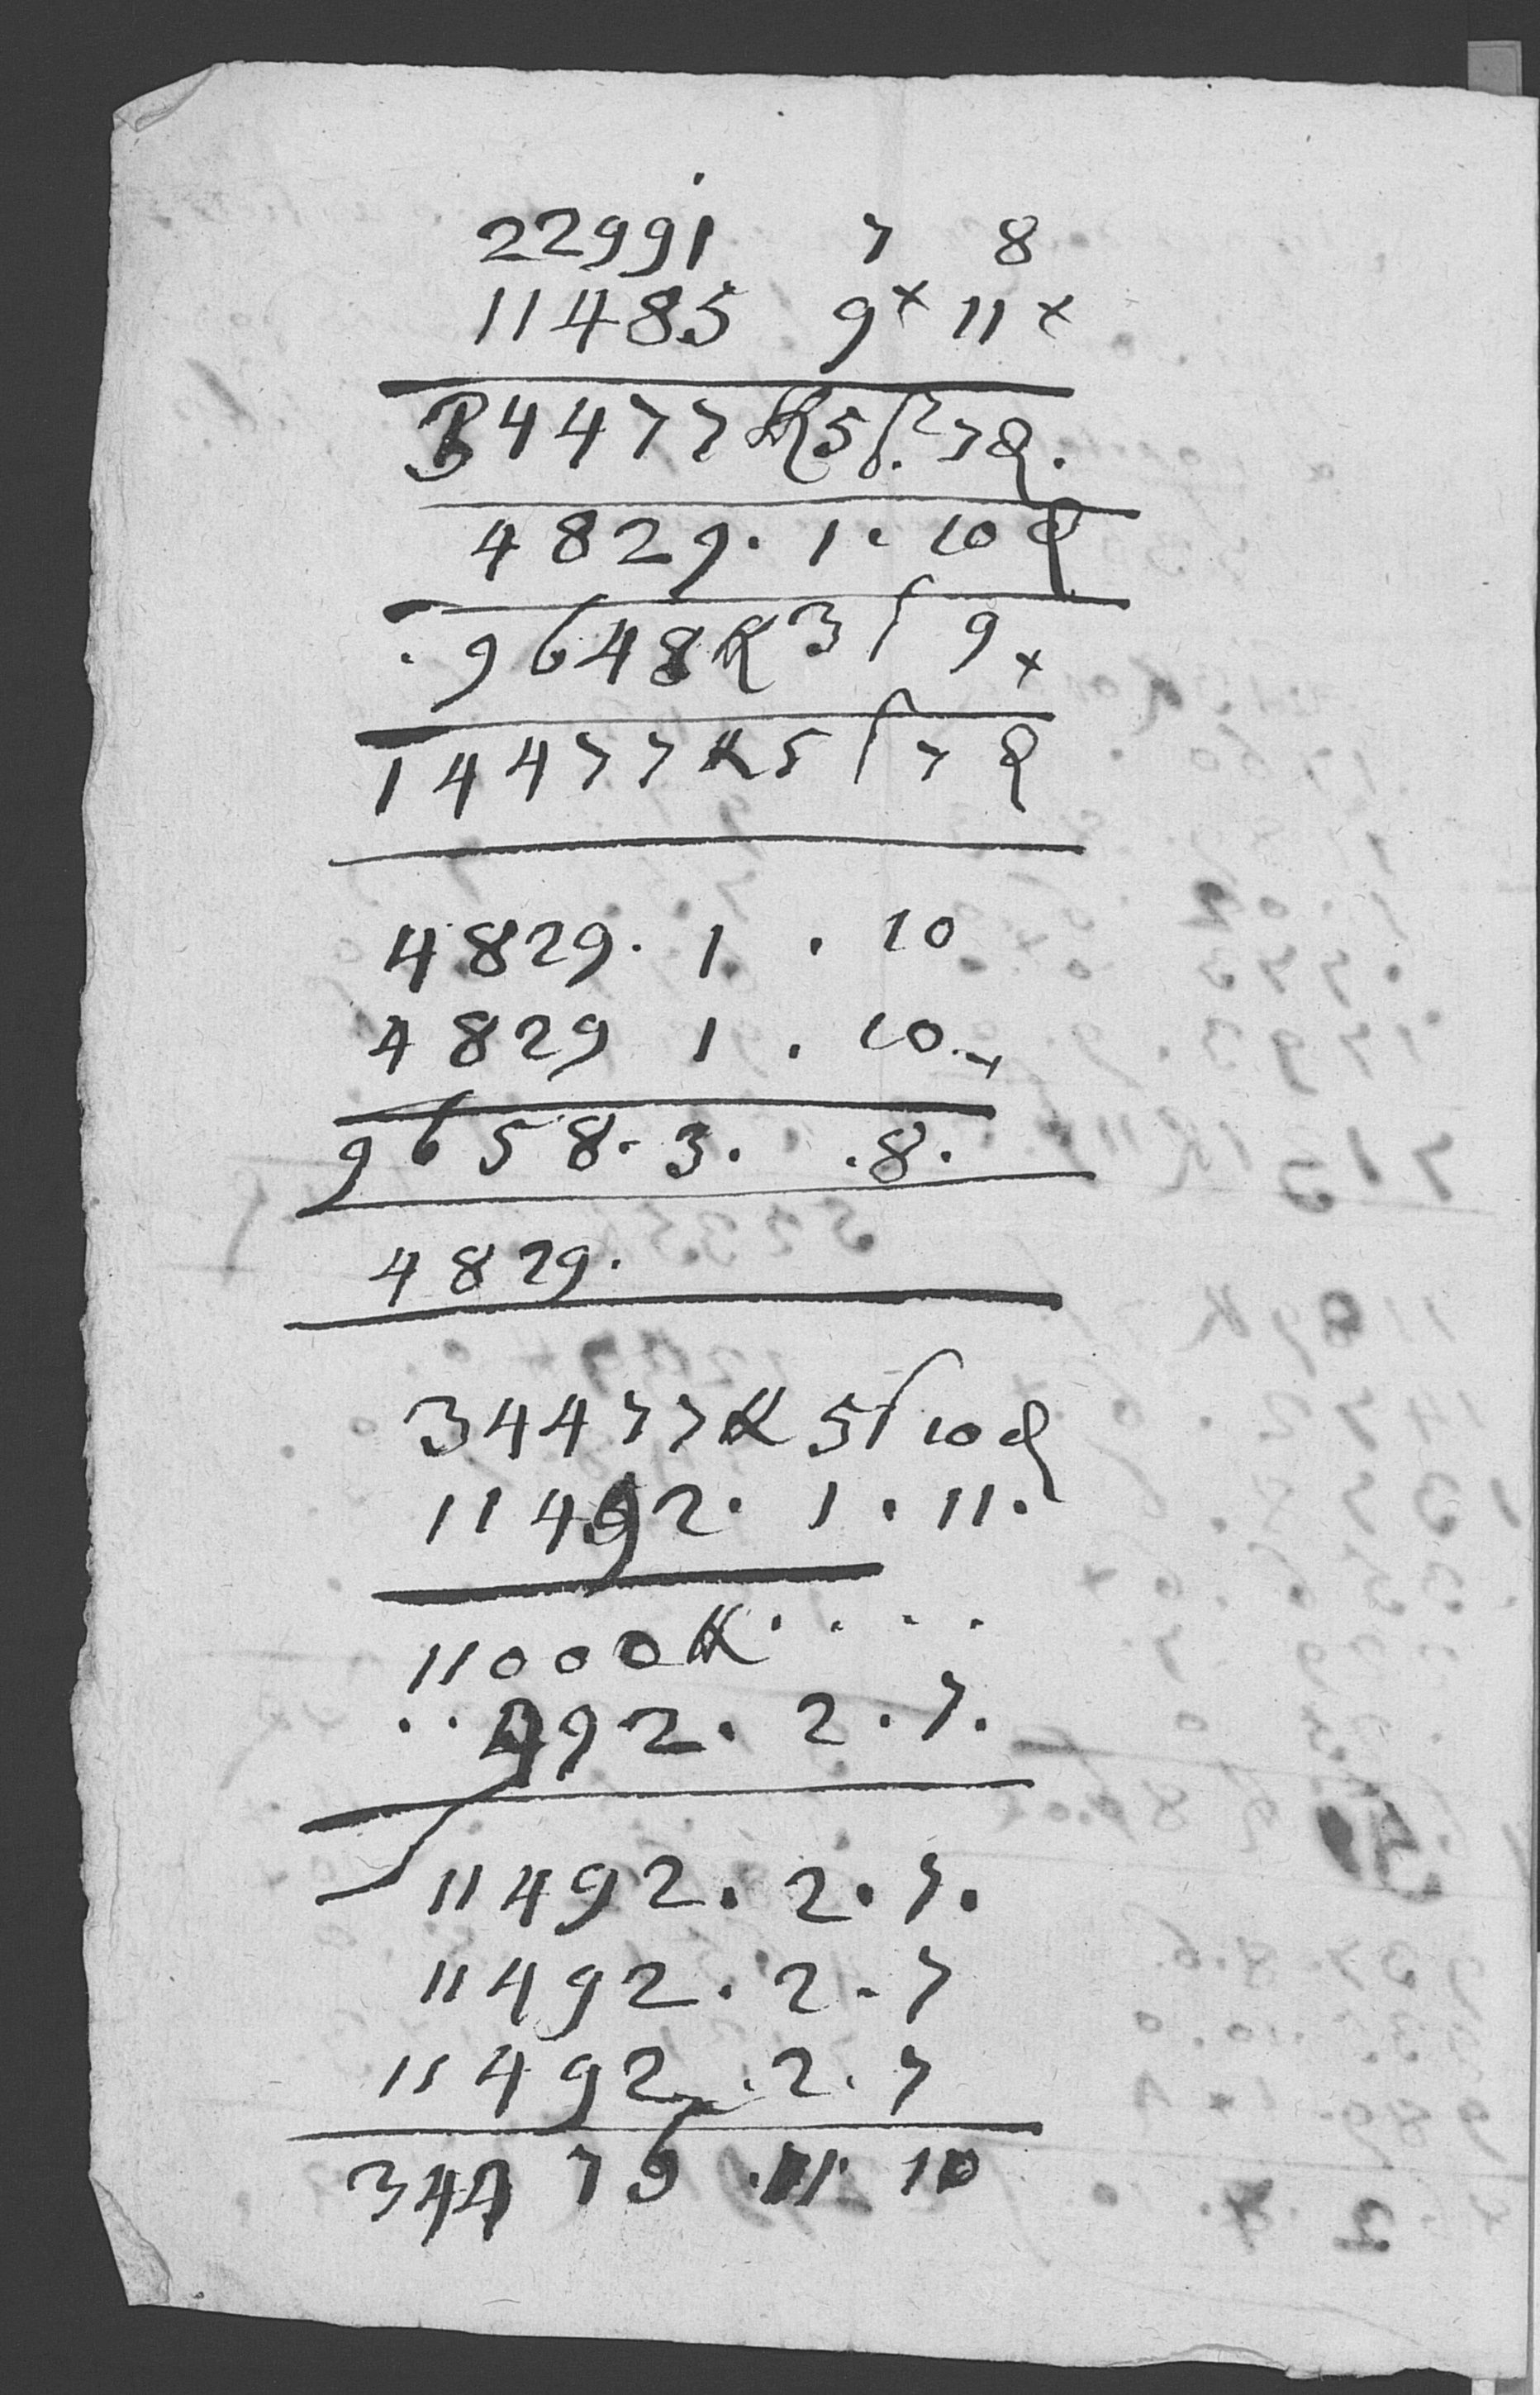 22991 7 8
11485 9x 11x
34477 K 5 ſ 7 ₰.
4829. 1. 10 ₰
. 9648 K 3 ſ 9 x
14477 K 5 ſ 7 ₰
4829. 1 . 10
4829 1 . 10.x
9658. 3. .8.
4829.
34477 K 5 ſ 10 ₰
11492. 1. 11.
11000 K . . . .
. . 492. 2. 7.
11492. 2. 7.
11492. 2. 7
11492. 2. 7
344 76 . 11. 10